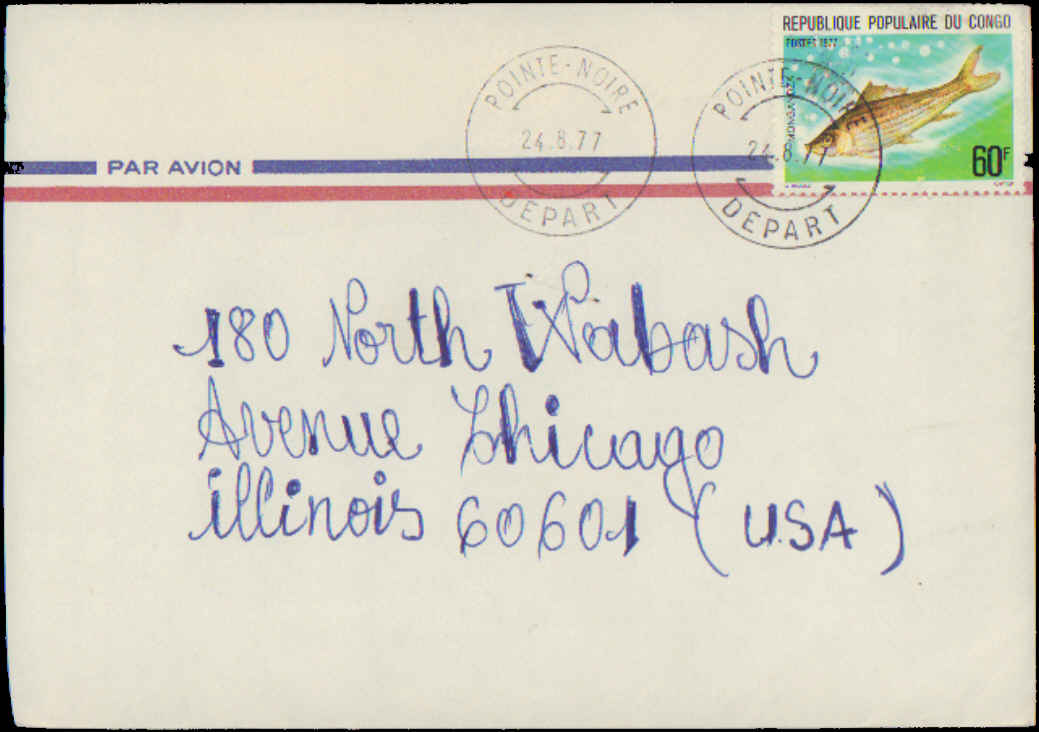 REPUBLIQUE POPULAIRE DU CONGO
POSTES 1977
60F
POINTE-NOIRE
24.8.77
DEPART
POINTE-NOIRE
24.8.77
DEPART
PAR AVION
180 North Wabash
Avenue Chicago
illinois 60601 (USA)